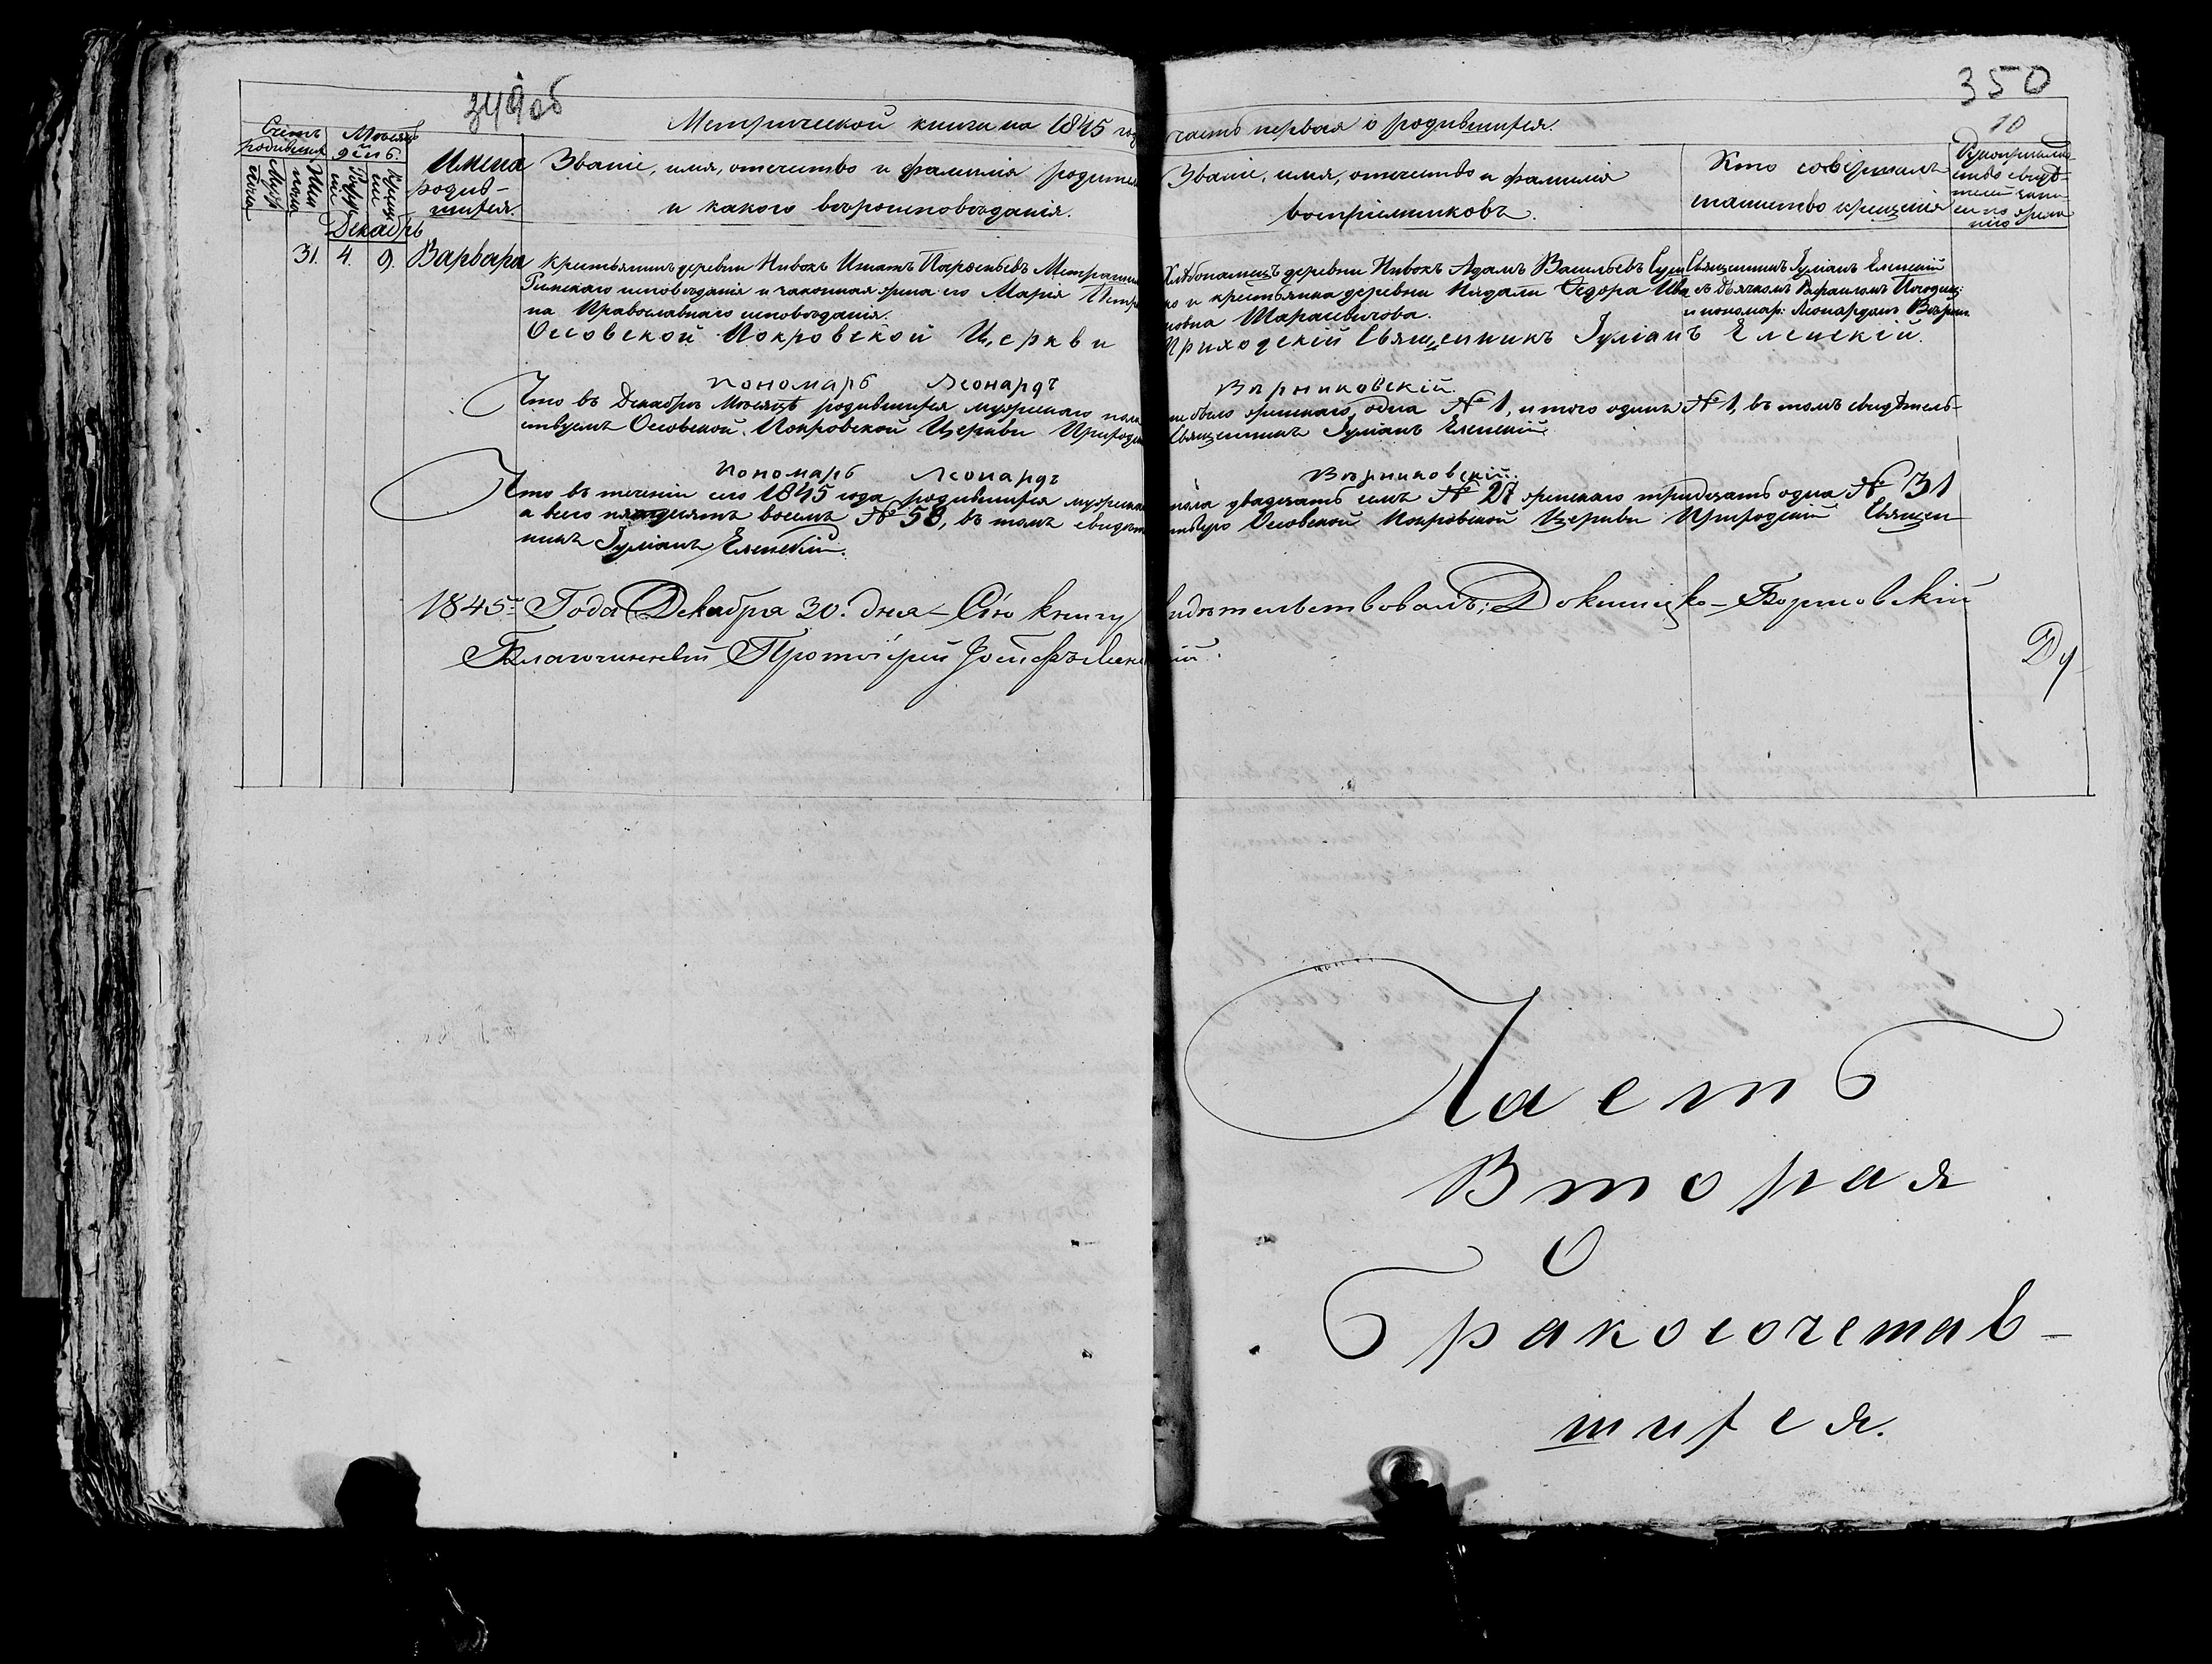 349об
350
Метрической книги на 1845 год
часть первая о родившихся.
10
Счетъ родившихся
Мѣсяцъ и день.
Имена родив-
шихся.
Званіе, имя, отечество и фамилія родител
и какого вѣроисповѣданія.
Званіе, имя, отечество и фамилія
воспріемниковъ.
Кто совершалъ
таинство крещенія
Рукоприклад-
ство свидѣ-
телей записи по желанію
Декабрь
31. 4. 9. Варвара
крестьянинъ деревни Нивокъ Игнатъ
Римскаго исповѣданія и законная жена его Марія Петро
на Православнаго исповѣданія.
Хлѣбопашецъ деревни Нивокъ Адамъ Васильевъ
ко и крестьянка деревни Ѳедора Ива
новна
Священникъ Іуліанъ Еленскій
съ дьячкомъ Рафаиломъ
и пономар: Леонардомъ
Осовской Покровской Церкви
Приходскій Священникъ Іуліанъ Еленскій.
Пономарь Леонардъ
Вѣрниковскій.
Что въ Декабрѣ Мѣсяцѣ родившихся мужескаго пола
не было женскаго одна № 1, итого одинъ № 1, въ томъ свидѣтель-
ствуемъ Осовской Покровской Церкви Приходск
Священникъ Іуліанъ Еленскій
Пономарь Леонардъ
Вѣрниковскій.
Что въ теченіи сего 1845 года родившихся мужескаго
пола двадцать семъ № 27 женскаго тридцать одна № 31
а всего пятьдесятъ восемь № 58, въ томъ свидѣтел
ствую Осовской Покровской Церкви Приходскій Священ
никъ Іуліанъ Еленскій.
1845го Года Декабря 30. дня Сію книгу
свидѣтельствовалъ: Докшицко-Борисовскій
Благочинный Протоіерей Іосифъ
Ду
Часть
Вторая
О
бракосочетав-
шихся.